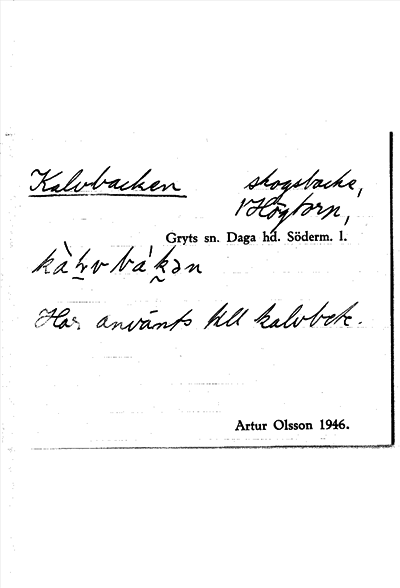 Kalvbacken skogsbacke,
1 Högtorp,
Gryts sn. Daga hd. Söderm. l.
Har använts till kalvbete.
Artur Olsson 1946.